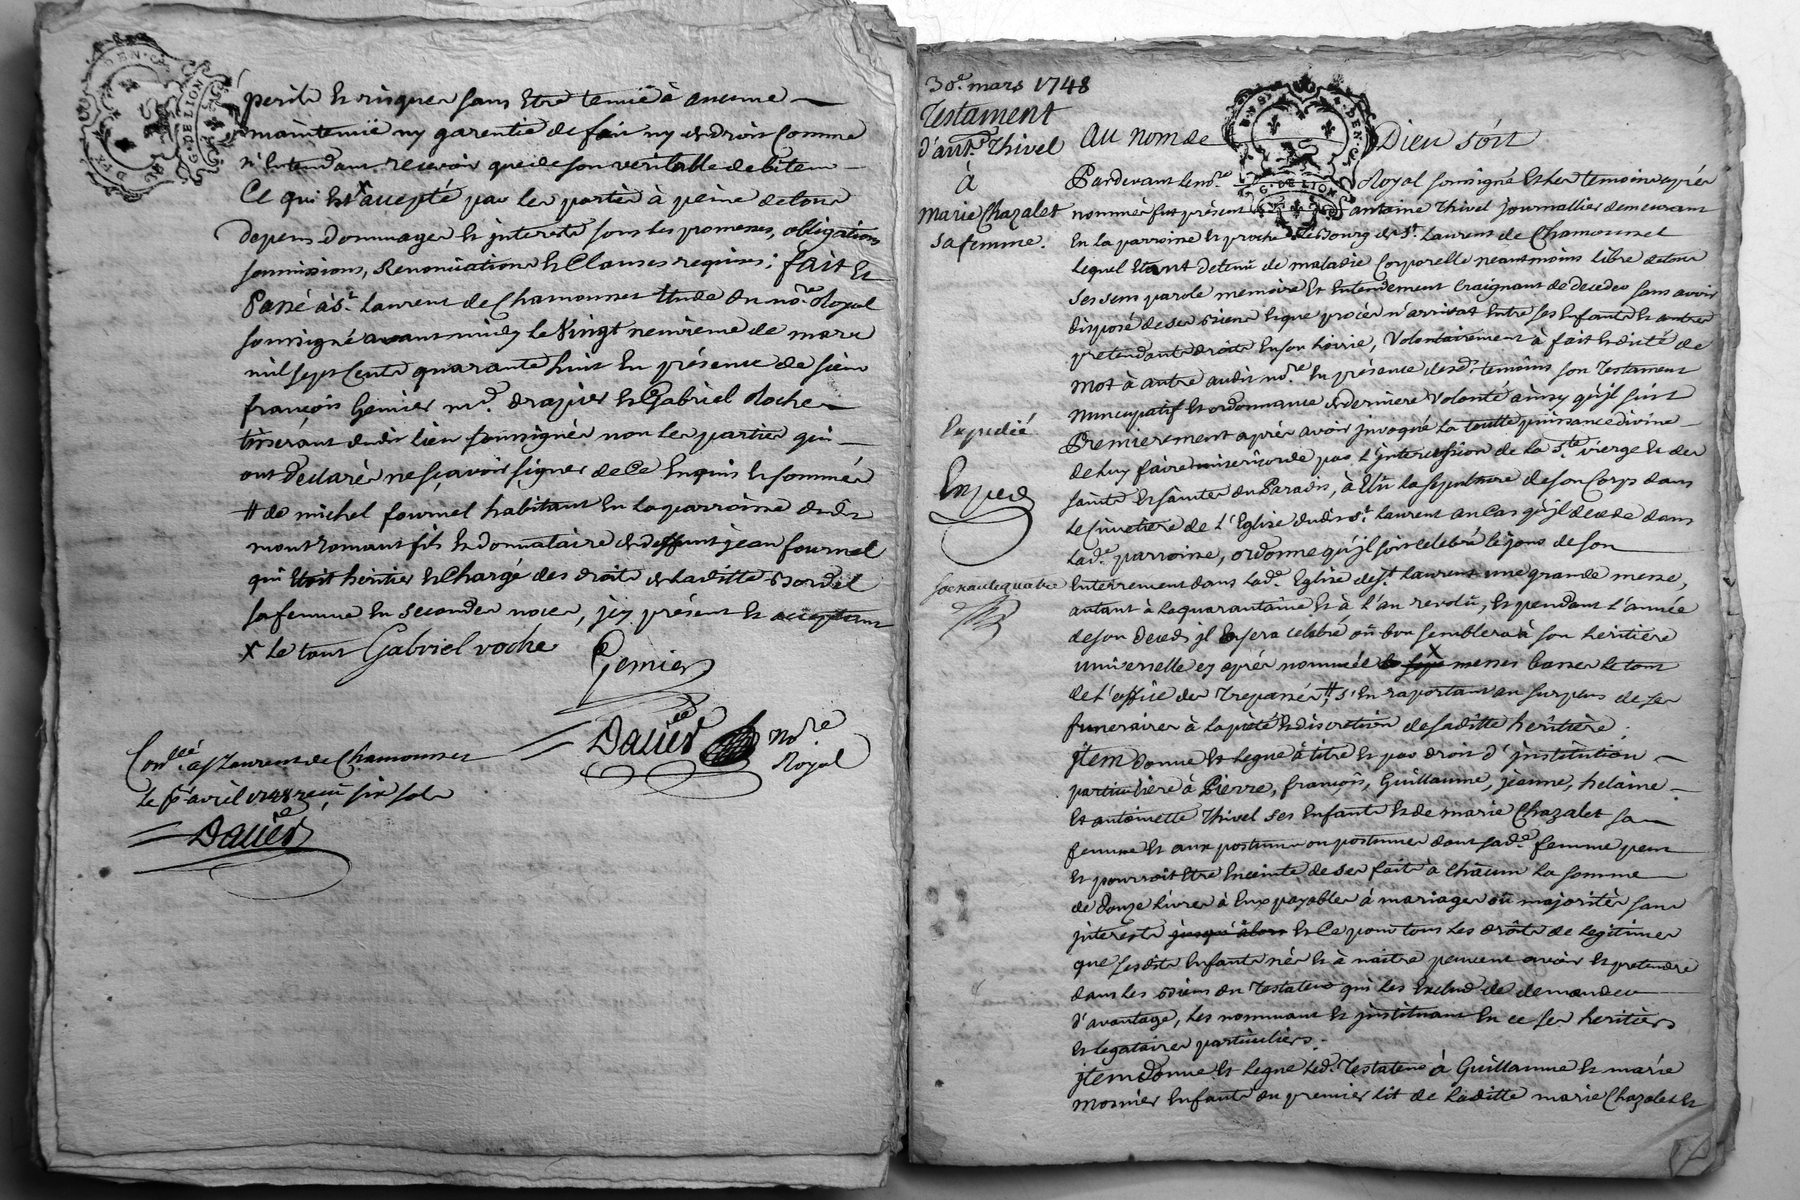 perils et risques sans etre tenuë à aucune
maintenüe ny garentie de fait ny de droit comme
n'entendant recevoir que de son veritable debiteur
Ce qui est x accepté par les parties à peine de tous
depens dommages et interests sous les promesses, obligations
soumissions, Renonciations et Clauses requises; fait et
Passé à St. Laurent de Chamousset Etude du nore. Royal
soussigné avant midy le Vingt neuvieme de mars
mil sept Cents quarante huit En présence de sieur
françois Gemier md. drapier et Gabriel Roche
tisserant dudit lieu soussignés non les parties qui
ont declaré ne sçavoir signer de ce Enquis et sommés
# de michel fournel habitant En la parroisse dudit
montromant fils et donnataire de deffunt jean fournel
qui Etoit héritier et Chargé des droits de laditte Bordel
sa femme En secondes noces, jcy présent et acceptant
x le tout Gabriel roche
Gemier
Davier nore
Royal
Conllé. à St Laurent de Chamousset
le pr. avril 1748 reçu six sols
Davier
G. DE LION
30e. mars 1748
Testament
d'antne. Thivel
à
marie Chazalet
sa femme.
Expedié
Exped
G. DE LION
Au nom de Dieu soit
Pardevant le nore. Royal soussigné et les temoins après
nommés fut présent antoine Thivel journallier demeurant
En la parroisse et proche le Bourg de St. Laurent de Chamousset
lequel Etant detenu de maladie Corporelle neantmoins libre de tous
ses sens parole memoire et Entendement Craignant de deceder sans avoir
disposé de ses biens et que procès n'arrivat Entre ses Enfants et autres
pretendants droits En son hoirie, Volontairement à fait et dicté de
mot à autre audit nore. En présence desds. temoins son Testament
nuncupatif et ordonnance de derniere volonté ainsy qu'jl suit
Premierement après avoir jnvoqué la toutte puissance divine
de luy faire misericorde par l'jntercession de la Ste. vierge et des
saints et saintes du Paradis, à Elû la sepulture de son Corps dans
le Cimetiere de l'Eglise dudit St. Laurent au Cas qu'jl decede dans
lade. parroisse, ordonne qu'jl soit celebré le jour de son
Enterrement dans lade. Eglise de St. Laurent une grande messe,
autant à la quarantaine et à l'an revolû, et pendant l'année
de son deceds jl En sera celebré où bon semblera à son heritiere
universelle cy après nommée x messes basses le tout
de l'office des Trepassés, # s'En raportant au surplus de ses
funeraires à la pieté et discretion de saditte heritiere.
jtem donne et legue à titre et par droit d'jnstitution
particuliere à Pierre, françois, Guillaume, jeanne, helaine
et antoinette Thivel ses Enfants et de marie Chazalet sa
femme et aux postume ou postumes dont sade. femme peut
et pourroit Etre Enceinte de ses faits à Chacun la somme
de douze livres à Eux payables à mariages ou majorités sans
jnterests jusqu'alors et Ce pour tous les droits de legitimes
que sesdits Enfants nés et à naitre peuvent avoir et pretendre
dans les biens du Testateur qui les Exclud de demander
d'avantage, les nommant et jnstituant En ce ses heritiers
et legataires particuliers.
jtem donne et legue led. Testateur à Guillaume et marie
mosnier Enfants du premier lit de laditte marie Chazalet et